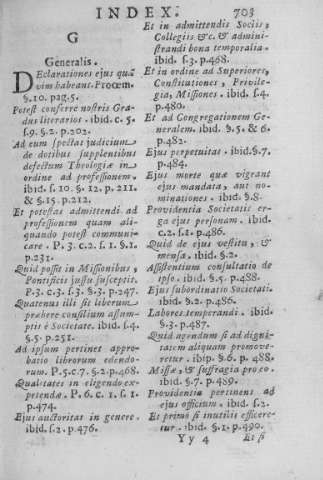 INDEX. 703
G
Generalis.
DEclarationes ejus quã
vim habeant. Proœm.
§.10. pag.5.
Potest conferre nostris Gra-
dus literarios. ibid. c. 5.
s.9. §.2. p.202.
Ad eum spectat judicium
de dotibus supplentibus
defectum Theologiæ in
ordine ad professionem.
ibid. s. 10. §. 12. p. 211.
& §.15. p.212.
Et potestas admittendi ad
professionem quam ali-
quando potest communi-
care. P. 3. c.2. s.1. §.2.
p.231.
Quid possit in Missionibus,
Pontificis jussu susceptis.
P.3. c.3. s.3. §.3. p.247.
Quatenus illi sit liberum
præbere consilium assum-
ptis è Societate. ibid. s.4.
§.5. p.251.
Ad ipsum pertinet appro-
batio librorum edendo-
rum. P.5.c.7. §.2.p.468.
Qualitates in eligendo ex-
petendæ. P. 6. c. 1. s. 1
p.474.
Ejus auctoritas in genere.
ibid. s.2. p.476.
Et in admittendis Sociis,
Collegiis &c. & admini-
strandi bona temporalia.
ibid. s.3. p.468.
Et in ordine ad Superiores,
Constitutiones, Privile-
gia, Missiones. ibid. s.4.
p.480.
Et ad Congregationem Ge-
neralem. ibid. §.5. & 6.
p.482.
Ejus perpetuitas. ibid. §.7.
p.484.
Ejus morte quæ vigeant
ejus mandata, aut no-
minationes. ibid. §.8.
Providentia Societatis er-
ga ejus personam. ibid.
c.2. s.1. p.486.
Quid de ejus vestitu, &
mensa. ibid. §.2.
Assistentium consultatio de
ipso. ibid. §.5. p.488.
Ejus subordinatio Societati.
ibid. §.2. p.486.
Labores temperandi. ibid.
§.3. p.487.
Quid agendum si ad digni-
tatem aliquam promove-
retur. ibip. §.6. p. 488.
Missæ, & suffragia pro eo.
ibid. §.7. p.489.
Providentia pertinens ad
ejus officium. ibid. s.2.
Et primò si inutilis effice-
tur. ibid. §.1. p.490.
Yy 4 Et si